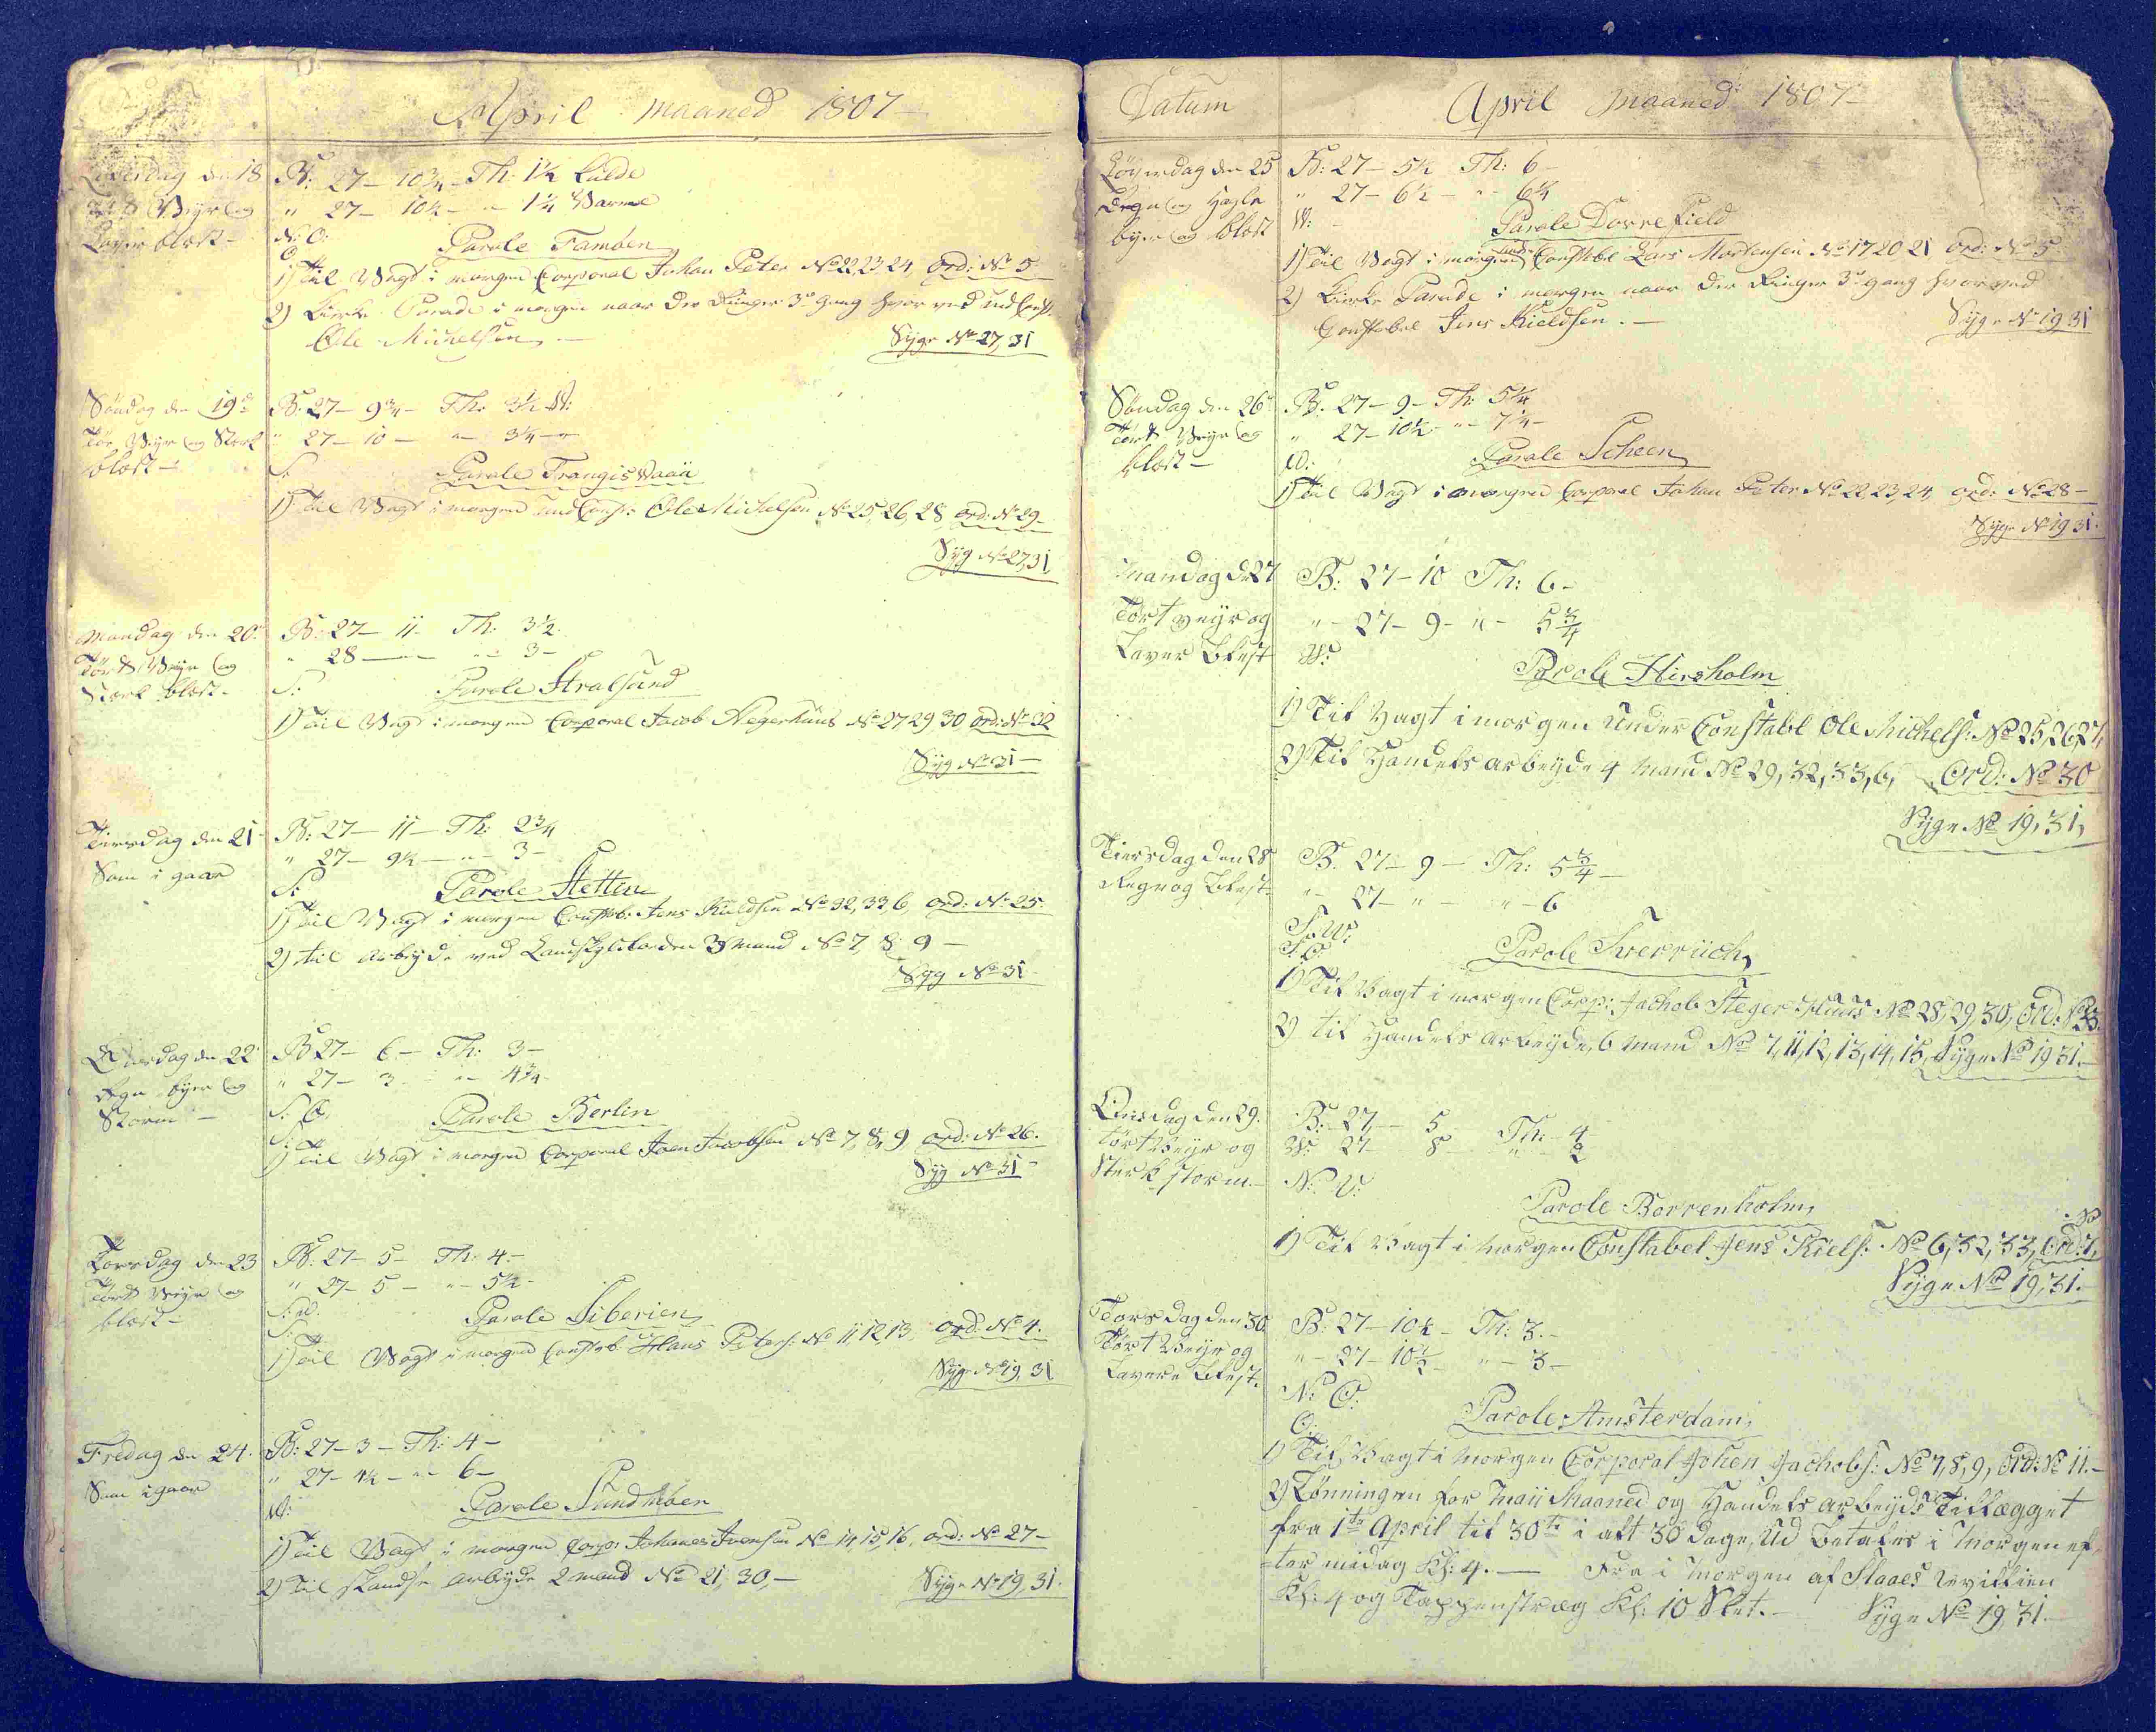 April maaned 1807
Löverdag den 18
B: 27 - 10 3/4 - Th: 1 1/2 kulde
" 27 - 10 1/2 - " 1 1/4 Varme
N: O:
O
Parole Tamben
1) Til Vagt i morgen Corporal Johan Peter No 22, 23, 24, Ord: No 5
2) Kirke Parade i morgen naar der Ringer 3de gang hvorved
Ole Michelsen
Syge No 27, 31
Söndag den 19de
Tör Veyr og Sterk
blæst -
B: 27 - 9 3/4 - Th: 3 1/2 V:
" 27 - 10 - " 3 1/4 -
S:
Parole Frangisvaaü
1) Til Vagt i morgen und Const: Ole Michelsen No 25, 26, 28, Ord: No 29 -
Syg No 27, 31
Mandag den 20de
Tört Veyr og
Sterk blæst -
B: 27 - 11 - Th: 3 1/2
" 28 - " 3 -
S:
Parole Stralsund
1) Til Vagt i morgen Corporal Jacob Stegerhuus No 27 29 30 Ord: No 32
Syg No 31 -
Tiersdag den 21
Som i gaar
B: 27 - 11 - Th: 2 3/4
" 27 - 9 1/2 - " - 3 -
S:
Parole Stettin
1) Til Vagt i morgen Constb: Jens Kieldsen No 32, 33, 6, Ord: No 25
2) til Arbeyde ved 3 Mand No 7, 8, 9 -
Syg No 31 -
Onsdag den 22
Regn byer og
Storm -
B 27 - 6 - Th: 3 -
" 27 - 3 - " 4 3/4
S: O,
S:
Parole Berlin
1) Til Vagt i morgen Corporal Joen Jacobsen No 7, 8, 9 Ord: No 26.
Syg No 31 -
Torsdag den 23
Tört Veyr og
blæst -
B: 27 - 5 - Th: 4 -
" 27 - 5 - " - 5 1/2 -
S: W.
S:
Parole Siberien
1) Til Vagt i morgen Constb. Hans Peters: No 11, 12, 13, Ord: No 4.
Syge No 19, 31
Fredag den 24.
Som i gaar
B: 27 - 3 - Th: 4 -
" 27 - 4 1/2 - " 6 -
W:
Parole Sundiben
1) Til Vagt i morgen Corpr Johannes Ivensen No 14 15, 16, Ord: No 27 -
2) Til skandse Arbeyde 2 mand No 21, 30, -
Syge No 19, 31.
Datum
April Maaned 1807
Löverdag den 25
Regn og Hagle
byer og blæst
B: 27 - 5 1/2 Th: 6 -
" 27 - 6 1/2 - " - 6 1/4
W:
Parole Dovrefield
1) Til Vagt i morgen und Constbl Lars Mortensen No 17 20 21 Ord: No 5
2) Kirke Parade i morgen naar der Ringer 3de gang hvorved
Constabel Jens Kieldsen. -
Syge No 19 31
Söndag den 26de
Tört Veyr og
blæst -
B: 27 - 9 - Th: 5 1/4
" 27 - 10 1/2 - " - 7 1/4 -
W:
Parole Scheen
1) Til Vagt i morgen Corporal Johan Peter No 22, 23, 24, Ord: No 28 -
Syge No 19 31.
Mandag d: 27
Tört veyr og
Laver Blest
B: 27 - 10 Th: 6 -
" - 27 - 9 - " - 5 3/4
W:
Parole Hirsholm
1) Til Vagt i morgen Under Constabl Ole Michels: No 25, 26, 27,
2) Til Handels arbeyde 4 Mand No 29, 32, 33, 6, Ord: No 30
Syge No 19, 31,
Tiersdag den 28
Regn og Blest
B. 27 - 9 - Th: 5 3/4 -
" - 27 - " - " - 6
S: W:
S: O:
Parole
1) Til Vagt i morgen Corp: Jachob Steger Huus No 28, 29, 30, Ord: No 33.
2) til Handels Arbeyde, 6 Mand No 7, 11, 12, 13, 14, 15, Syge No 19 31. -
Onsdag den 29.
tört Veyr og
Sterk storm. -
B: 27 - 5 Th: 4
W: 27 8 - " 2
N: V:
Parole Borrenholm,
1) Til Vagt i Morgen Constabel Jens Kiels: No 6, 32, 33, Ord: No 7,
Syge No 19, 31. -
Torsdag den 30
Tört Veyr og
Lavere Blest.
B: 27 - 10 1/2 - Th: 3. -
" - 27 - 10 1/2 " - 3 -
N: O:
O:
Parole Amsterdam,
1) Til Vagt i Morgen Corporal Johen Jachobs: No 7, 8, 9, Ord: No 11. -
2) Lönningen for Maii Maaned og Handels arbeyds Tillægget
fra 1te April til 30te i alt 30 Dage, Ud betales i Morgen ef-
-ter midag Kl: 4. - Fra i Morgen af Slaaes Revillien
Kl: 4 og Tappenstræg Kl: 10 Slet. - Syge No 19, 31. -